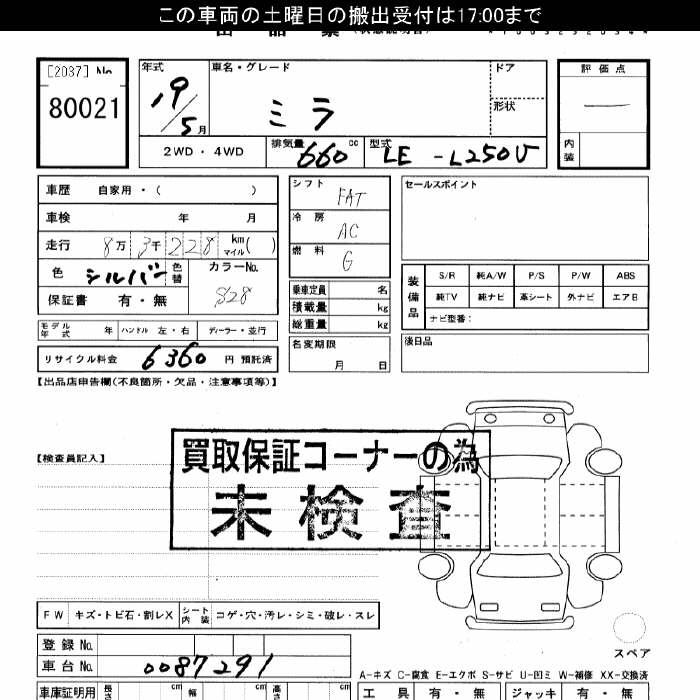 この車両の土曜日の搬出受付は17:00まで
[2037] No
80021
年式 車名・グレード ドア 評価点
19/5月 ミラ 形状 —
2WD・4WD 排気量 660 cc 型式 LE-L250V 内装
車歴 自家用・( )
車検 年 月
走行 8万3千228 km マイル( )
色 シルバー 色替 カラーNo.
保証書 有・無 S28
モデル年式 年 ハンドル 左・右 ディーラー・並行
リサイクル料金 6360 円 預託済
シフト FAT
冷房 AC
燃料 G
乗車定員 名
積載量 kg
総重量 kg
名変期限
月 日
セールスポイント
装備品 S/R 純A/W P/S P/W ABS
純TV 純ナビ 革シート 外ナビ エアB
ナビ型番:
後日品
【出品店申告欄(不良箇所・欠品・注意事項等)】
【検査員記入】
買取保証コーナーの為
未検査
FW キズ・トビ石・割レX シート内装 コゲ・穴・汚レ・シミ・破レ・スレ
登録No.
車台No. 0087291
スペア
A-キズ C-腐食 E-エクボ S-サビ U-凹ミ W-補修 XX-交換済
車庫証明用 長さ cm 幅 cm 高さ cm 工具 有・無 ジャッキ 有・無